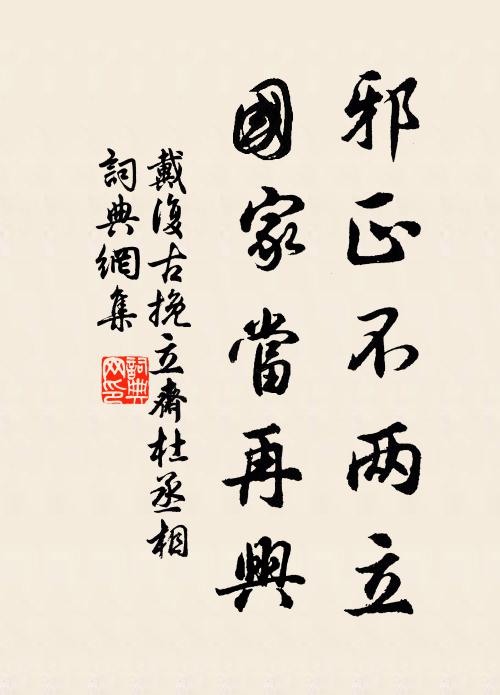 邪正不两立
國家當再興
戴復古挽立齋杜丞相
詞典網集
詞典
网印